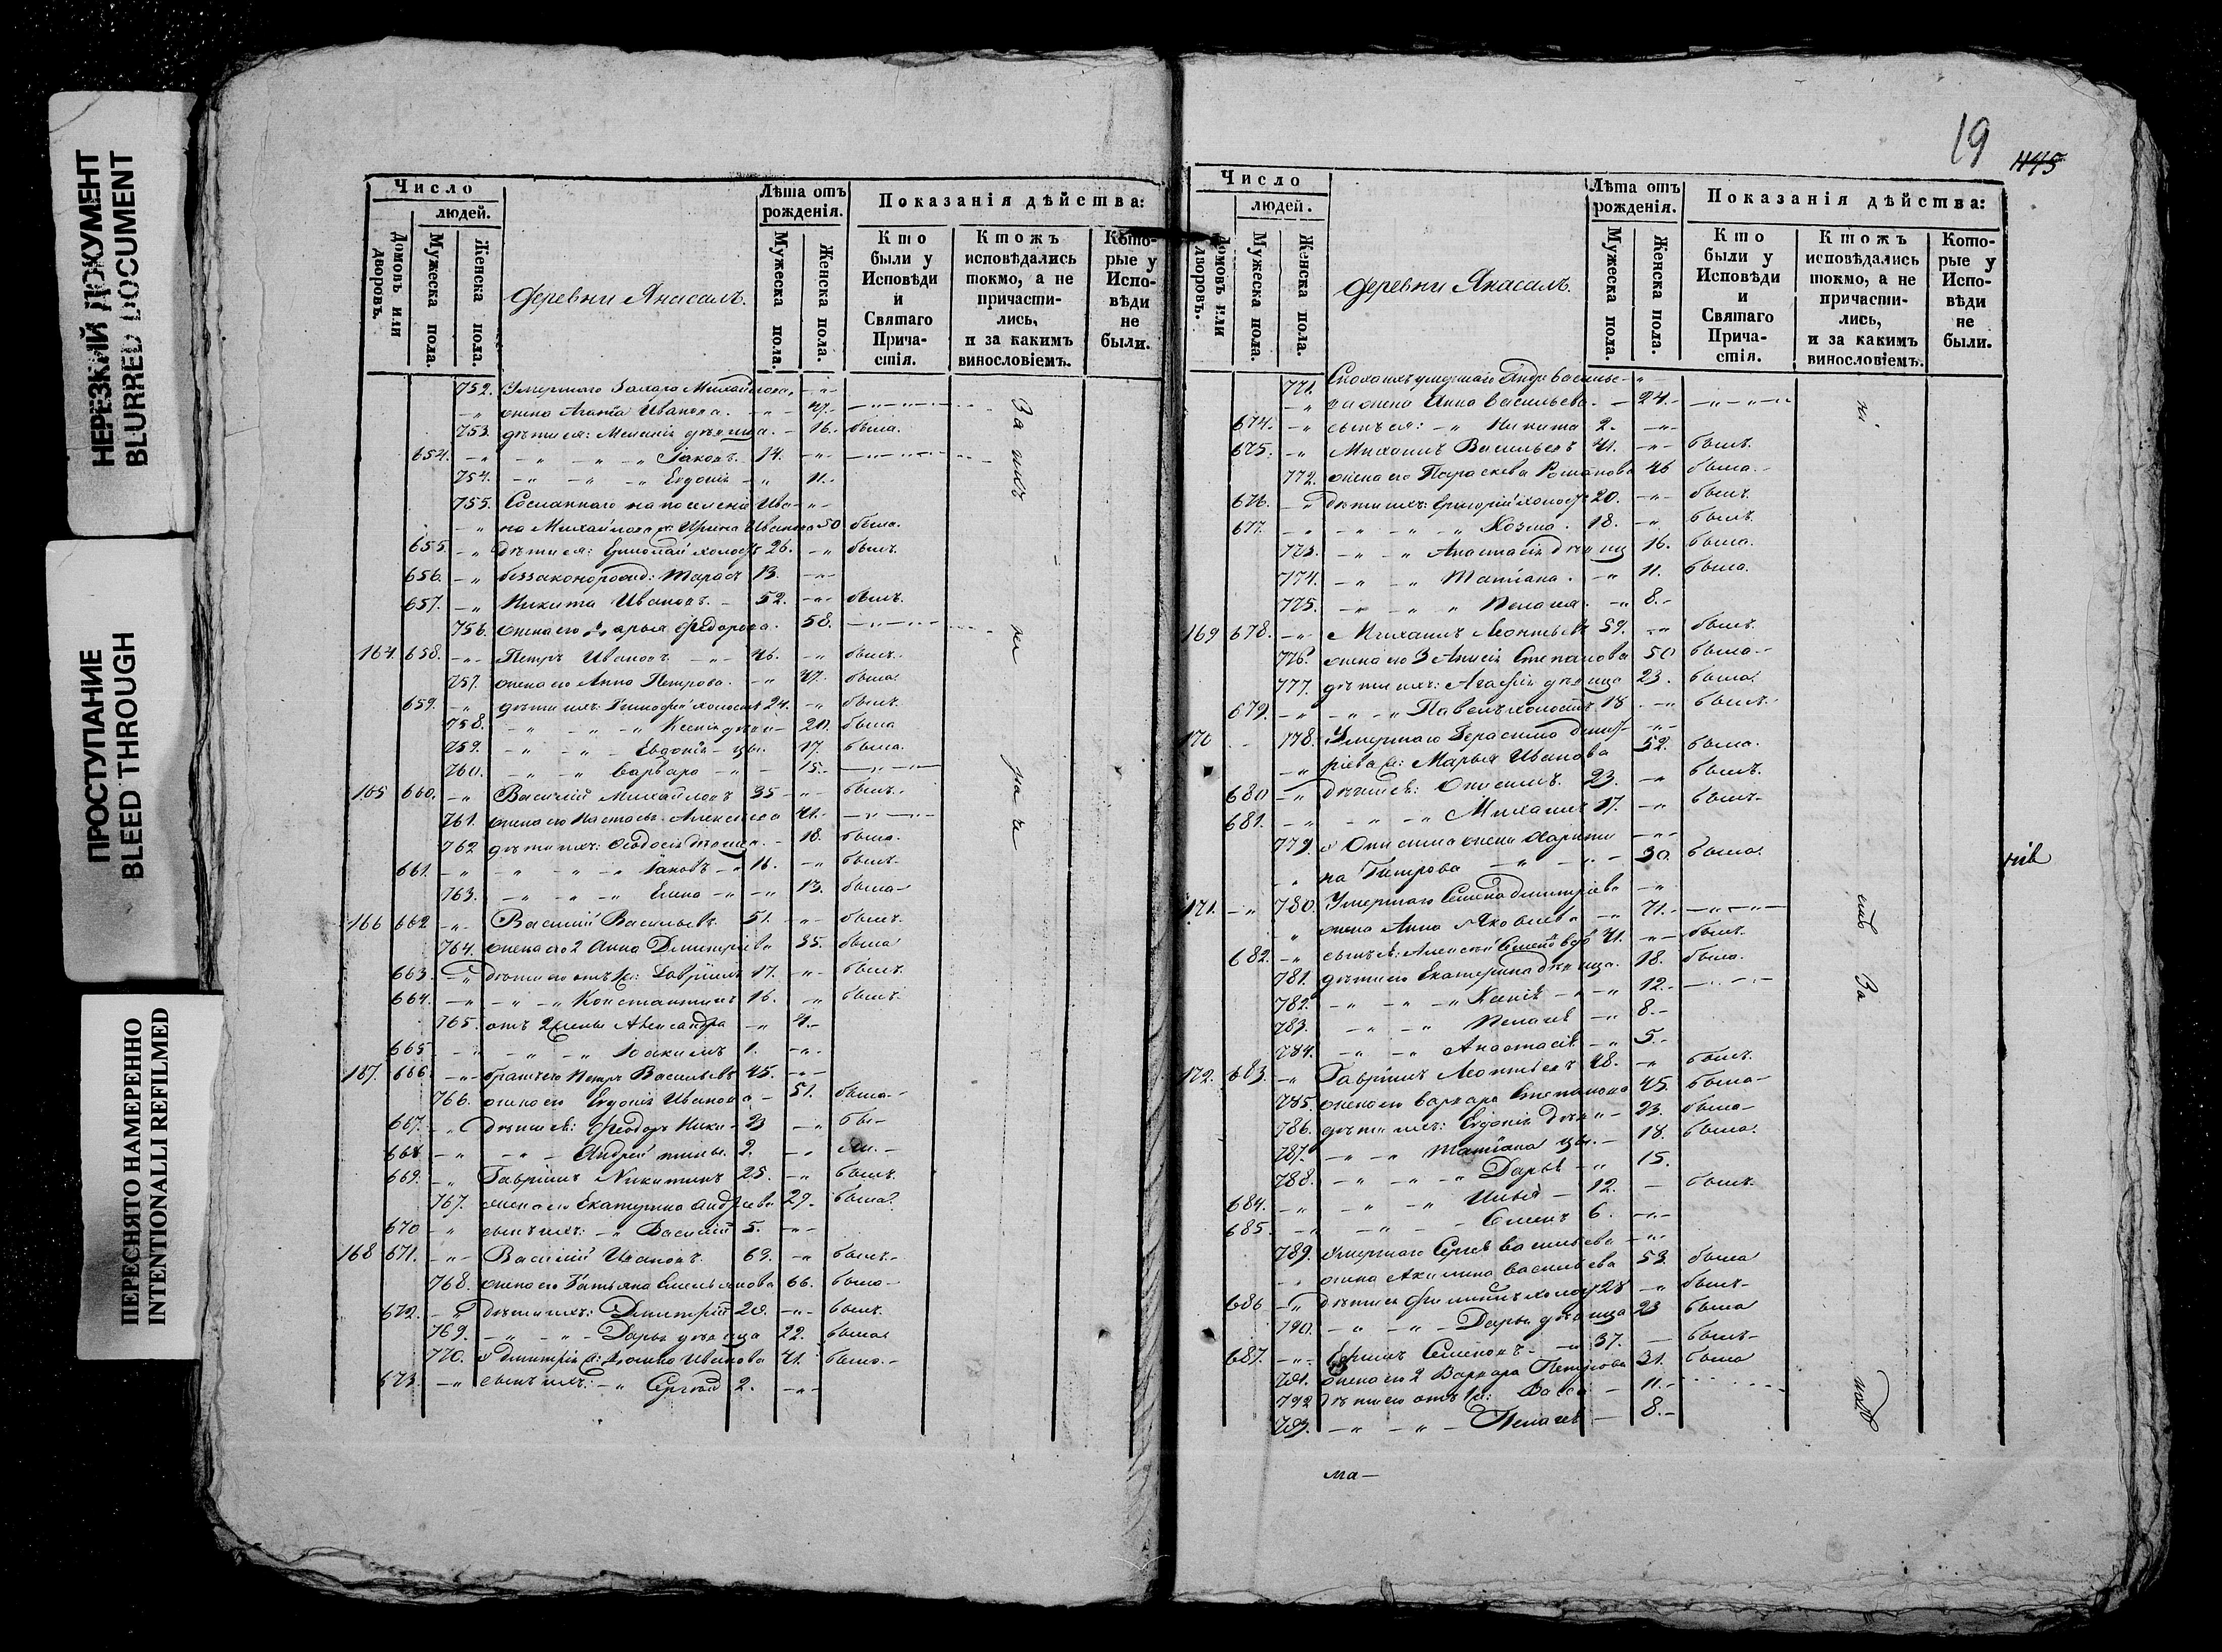 НЕРЕЗКИЙ ДОКУМЕНТ
BLURRED DOCUMENT
ПРОСТУПАНИЕ
BLEED THROUGH
ПЕРЕСНЯТО НАМЕРЕННО
INTENTIONALLI REFILMED
Число
людей.
Домовъ или дворовъ.
Мужеска пола.
Женска пола.
деревни Янасалъ.
Лѣта отъ рожденія.
Мужеска пола.
Женска пола.
Показанія дѣйства:
Кто были у Исповѣди и Святаго Причастія.
Ктожъ исповѣдались токмо, а не причастились, и за какимъ винословіемъ.
Которые у Исповѣди не были.
752. Умершаго Михайлова
жена Агафія Иванова. 47.
753. дѣти ея: Меланія дѣвица. 16. была.
654. Іаковъ. 14.
754. Евдокія 11.
755. Сосланнаго на поселеніе Ива-
на Михайлова ж: Ирина Иванова 50 была.
655. дѣти ея: Ермолай холостъ 26. былъ.
656. беззаконорожд: Тарасъ 13.
657. Никита Ивановъ. 52. былъ.
756. жена его Дарья Федорова. 58.
164. 658. Петръ Ивановъ 46. былъ.
757. жена его Анна Петрова. 47. была
659. дѣти ихъ: Тимофей холостъ 24. былъ.
758. Ксенія дѣви- 20. была
759. Евдокія цы. 17. была.
760. Варвара 15.
165 660. Василій Михайловъ 35 былъ.
761. жена его Настасья Алексѣева 41.
762 дѣти ихъ: Феодосія дѣвица. 18. была.
661. Іаковъ 16. былъ.
763. Елена 13. была
166 662 Василій Васильевъ 51. былъ.
764. жена его 2 Анна Дмитріева 35. была
663. дѣти его отъ 1й: Гавріилъ 17. былъ.
664. Константинъ 16. былъ.
765. отъ 2 жены Александра 4.
665 Іоакимъ 1.
167. 666 братъ его Петръ Васильевъ 45.
766. жена его Евдокія Иванова 51. была.
667. дѣти ея: Феодоръ Ники- 23 бы-
668 Андрей тины. 2. ли.
669. Гавріилъ Никитинъ 25. былъ.
767. жена его Екатерина Андреева 29. была
670 сынъ ихъ: Василій 5.
168 671. Василій Ивановъ. 69. былъ.
768. жена его Татьяна Емельянова 66. была
672. дѣти ихъ: Дмитрій 20. былъ.
769. Дарья дѣвица 22. была
770. у Дмитрія ж: Иванова 21. была.
673. сынъ ихъ: Сергѣй 2.
За ихъ
19
Число
людей.
Домовъ или дворовъ.
Мужеска пола.
Женска пола.
деревни Янасалъ.
Лѣта отъ рожденія.
Мужеска пола.
Женска пола.
Показанія дѣйства:
Кто были у Исповѣди и Святаго Причастія.
Ктожъ исповѣдались токмо, а не причастились, и за какимъ винословіемъ.
Которые у Исповѣди не были.
771. Сноха ихъ умершаго Андр Василье-
ва жена Анна Васильева. 24.
674. сынъ ея: Никита 2.
675. Михаилъ Васильевъ 41. былъ.
772. жена его Параскева Романова 46 была.
676. дѣти ихъ: Григорій холост 20. былъ.
677. Козма. 18. былъ.
773. Анастасія дѣвиц 16. была.
774. Матіана. 11. была.
775. Пелагея. 8.
169 678. Михаилъ Леонтьевъ 59. былъ.
776. жена его 3 Анисія Степанова 50 была.
777. дѣти ихъ: Агафія дѣвица 23. была
679. Павелъ холостъ 18 былъ.
170 778. Умершаго Герасима Дмит-
ріева ж: Марья Иванова 52. была.
680 дѣти ея: Онисимъ. 23. былъ.
681. Михаилъ 17. былъ.
779. у Онисима жена Харити-
на Петрова 30. была.
171. 780. Умершаго Семена Дмитріева
жена Анна Яковлева 71.
682. сынъ ея: Алексѣй вдов 41. былъ.
781. дѣти его Екатерина дѣвица. 18. была.
782. Ксенія 12.
783. Пелагея 8.
784. Анастасія 5.
172. 683. Гавріилъ Леонтьевъ 48. былъ.
785. жена его Варвара Степанова 45. была
786. дѣти ихъ: Евдокія дѣви- 23. была
787. Матіана цы. 18. была.
788. Дарья 15.
684. Илья 12. былъ.
685. Семенъ 6.
789. Умершаго Сергѣя Васильева
жена Акилина Васильева 53. была
686 дѣти ея Филиппъ холос 28 былъ
790. Дарья дѣвица 23 была
687. Семеновъ 37. былъ
791. жена его 2 Варвара Петрова 31. была
792 дѣти его отъ 1й: Васса 11.
793. Пелагея 8.
За
ма-